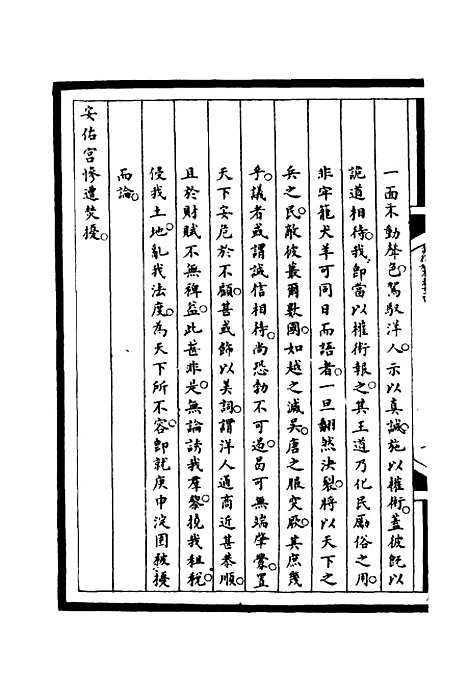 一面不動聲色。駕馭洋人。示以真誠。施以權術。蓋彼既以
詭道相待。我即當以權術報之。其王道乃化民勵俗之用。
非牢籠犬羊可同日而語者。一旦翻然決裂。將以天下之
兵之民。敵彼叢爾數國。如越之滅吳。唐之服突厥。其庶幾
乎。議者或謂誠信相待。尚恐勃不可遏。曷可無端肇釁。置
天下安危於不顧。甚或飾以美詞。謂洋人通商近甚恭順。
且於財賦不無裨益。此甚非是。無論誘我羣黎。撓我租稅。
侵我土地。亂我法度。為天下所不容。即就庚申淀園被擾
而論。
安佑宮慘遭焚擾。